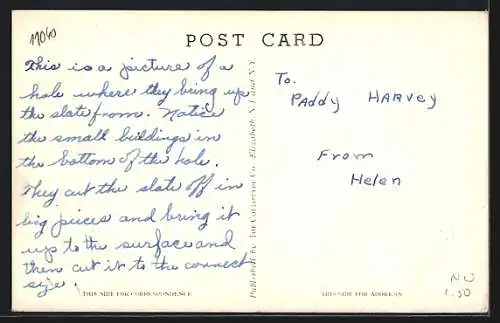 11060
POST CARD
This is a picture of a
hole where they bring up
the slate from. Notice
the small buildings in
the bottom of the hole.
They cut the slate off in
big pieces and bring it
up to the surface and
then cut it to the connect
size.
THIS SIDE FOR CORRESPONDENCE
Published by The Collotype Co., Elizabeth, N.J. and N.Y.
To.
PADDY HARVEY
From
Helen
THIS SIDE FOR ADDRESS
NW
1.50